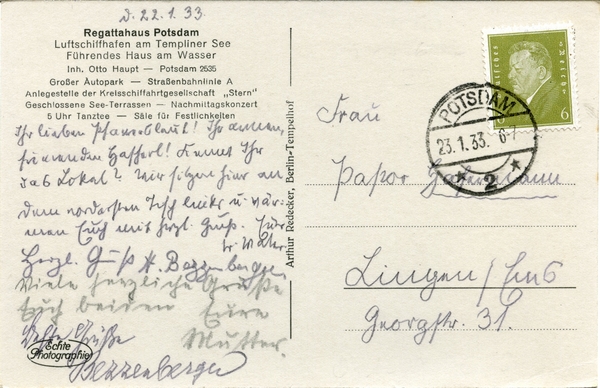 d. 22.1.33.
Regattahaus Potsdam
Luftschiffhafen am Templiner See
Führendes Haus am Wasser
Inh. Otto Haupt — Potsdam 2535
Großer Autopark — Straßenbahnlinie A
Anlegestelle der Kreisschiffahrtgesellschaft „Stern"
Geschlossene See-Terrassen — Nachmittagskonzert
5 Uhr Tanztee — Säle für Festlichkeiten
Ihr lieben Ihr armen
frierenden Kennt Ihr
das Lokal? Wir sitzen hier an
dem vordersten Tisch links u. wär-
men Euch mit herzl. Gruß. Eure
Herzl. Gruß H. Bezzenberger
Viele herzliche Grüße
Euch beiden Eure
Mutter.
Grüße
Bezzenberger
Echte
Photographie
Arthur Redecker, Berlin-Tempelhof
Deutsches Reich
6
POTSDAM
23.1.33. 6-7
* 2 *
Frau
Pastor
Lingen/Ems
Georgstr. 31.